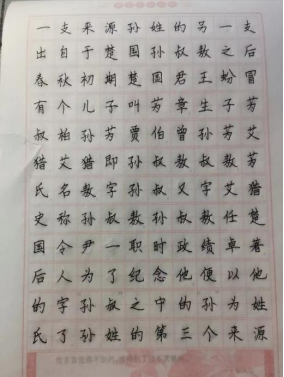 一支来源孙姓的另一支
出自于楚国孙叔敖之后
春秋初期楚国君王蚡冒
有个儿子叫芳章生子芳
叔柏孙芳贾伯曾孙芳艾
猎艾猎即孙叔敖叔敖芳
氏名敖字孙叔又字艾猎
史称孙叔敖孙叔敖任楚
国令尹一职时政绩卓著
后人为了纪念他便以他
的字孙叔之中的孙为姓
氏了孙姓的第三个来源